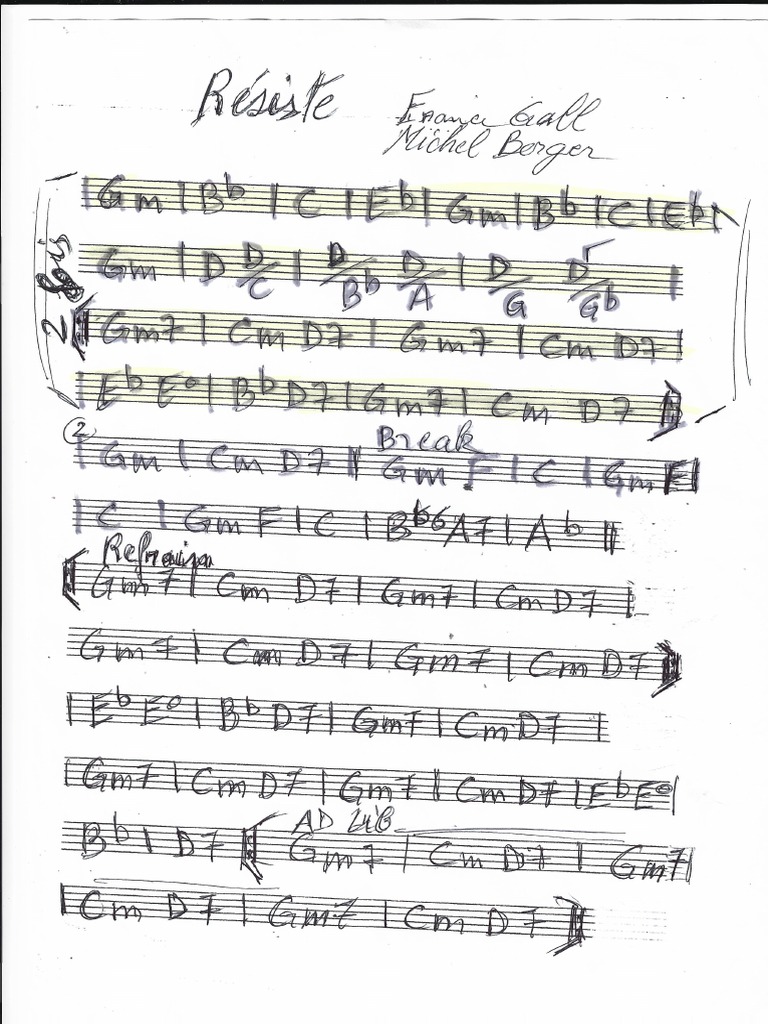 Résiste
France Gall
Michel Berger
2 fois
Gm | Bb | C | Eb | Gm | Bb | C | Eb |
Gm | D D/C | D/Bb D/A | D/G D/Gb |
Gm7 | Cm D7 | Gm7 | Cm D7 |
Eb E° | Bb D7 | Gm7 | Cm D7
② Break
| Gm | Cm D7 || Gm F | C | Gm F |
| C | Gm F | C | Bb6 A7 | Ab ||
Refrain
Gm7 | Cm D7 | Gm7 | Cm D7 |
Gm7 | Cm D7 | Gm7 | Cm D7
| Eb E° | Bb D7 | Gm7 | Cm D7 |
| Gm7 | Cm D7 | Gm7 | Cm D7 | Eb E° |
AD LIB
Bb | D7 Gm7 | Cm D7 | Gm7 |
| Cm D7 | Gm7 | Cm D7